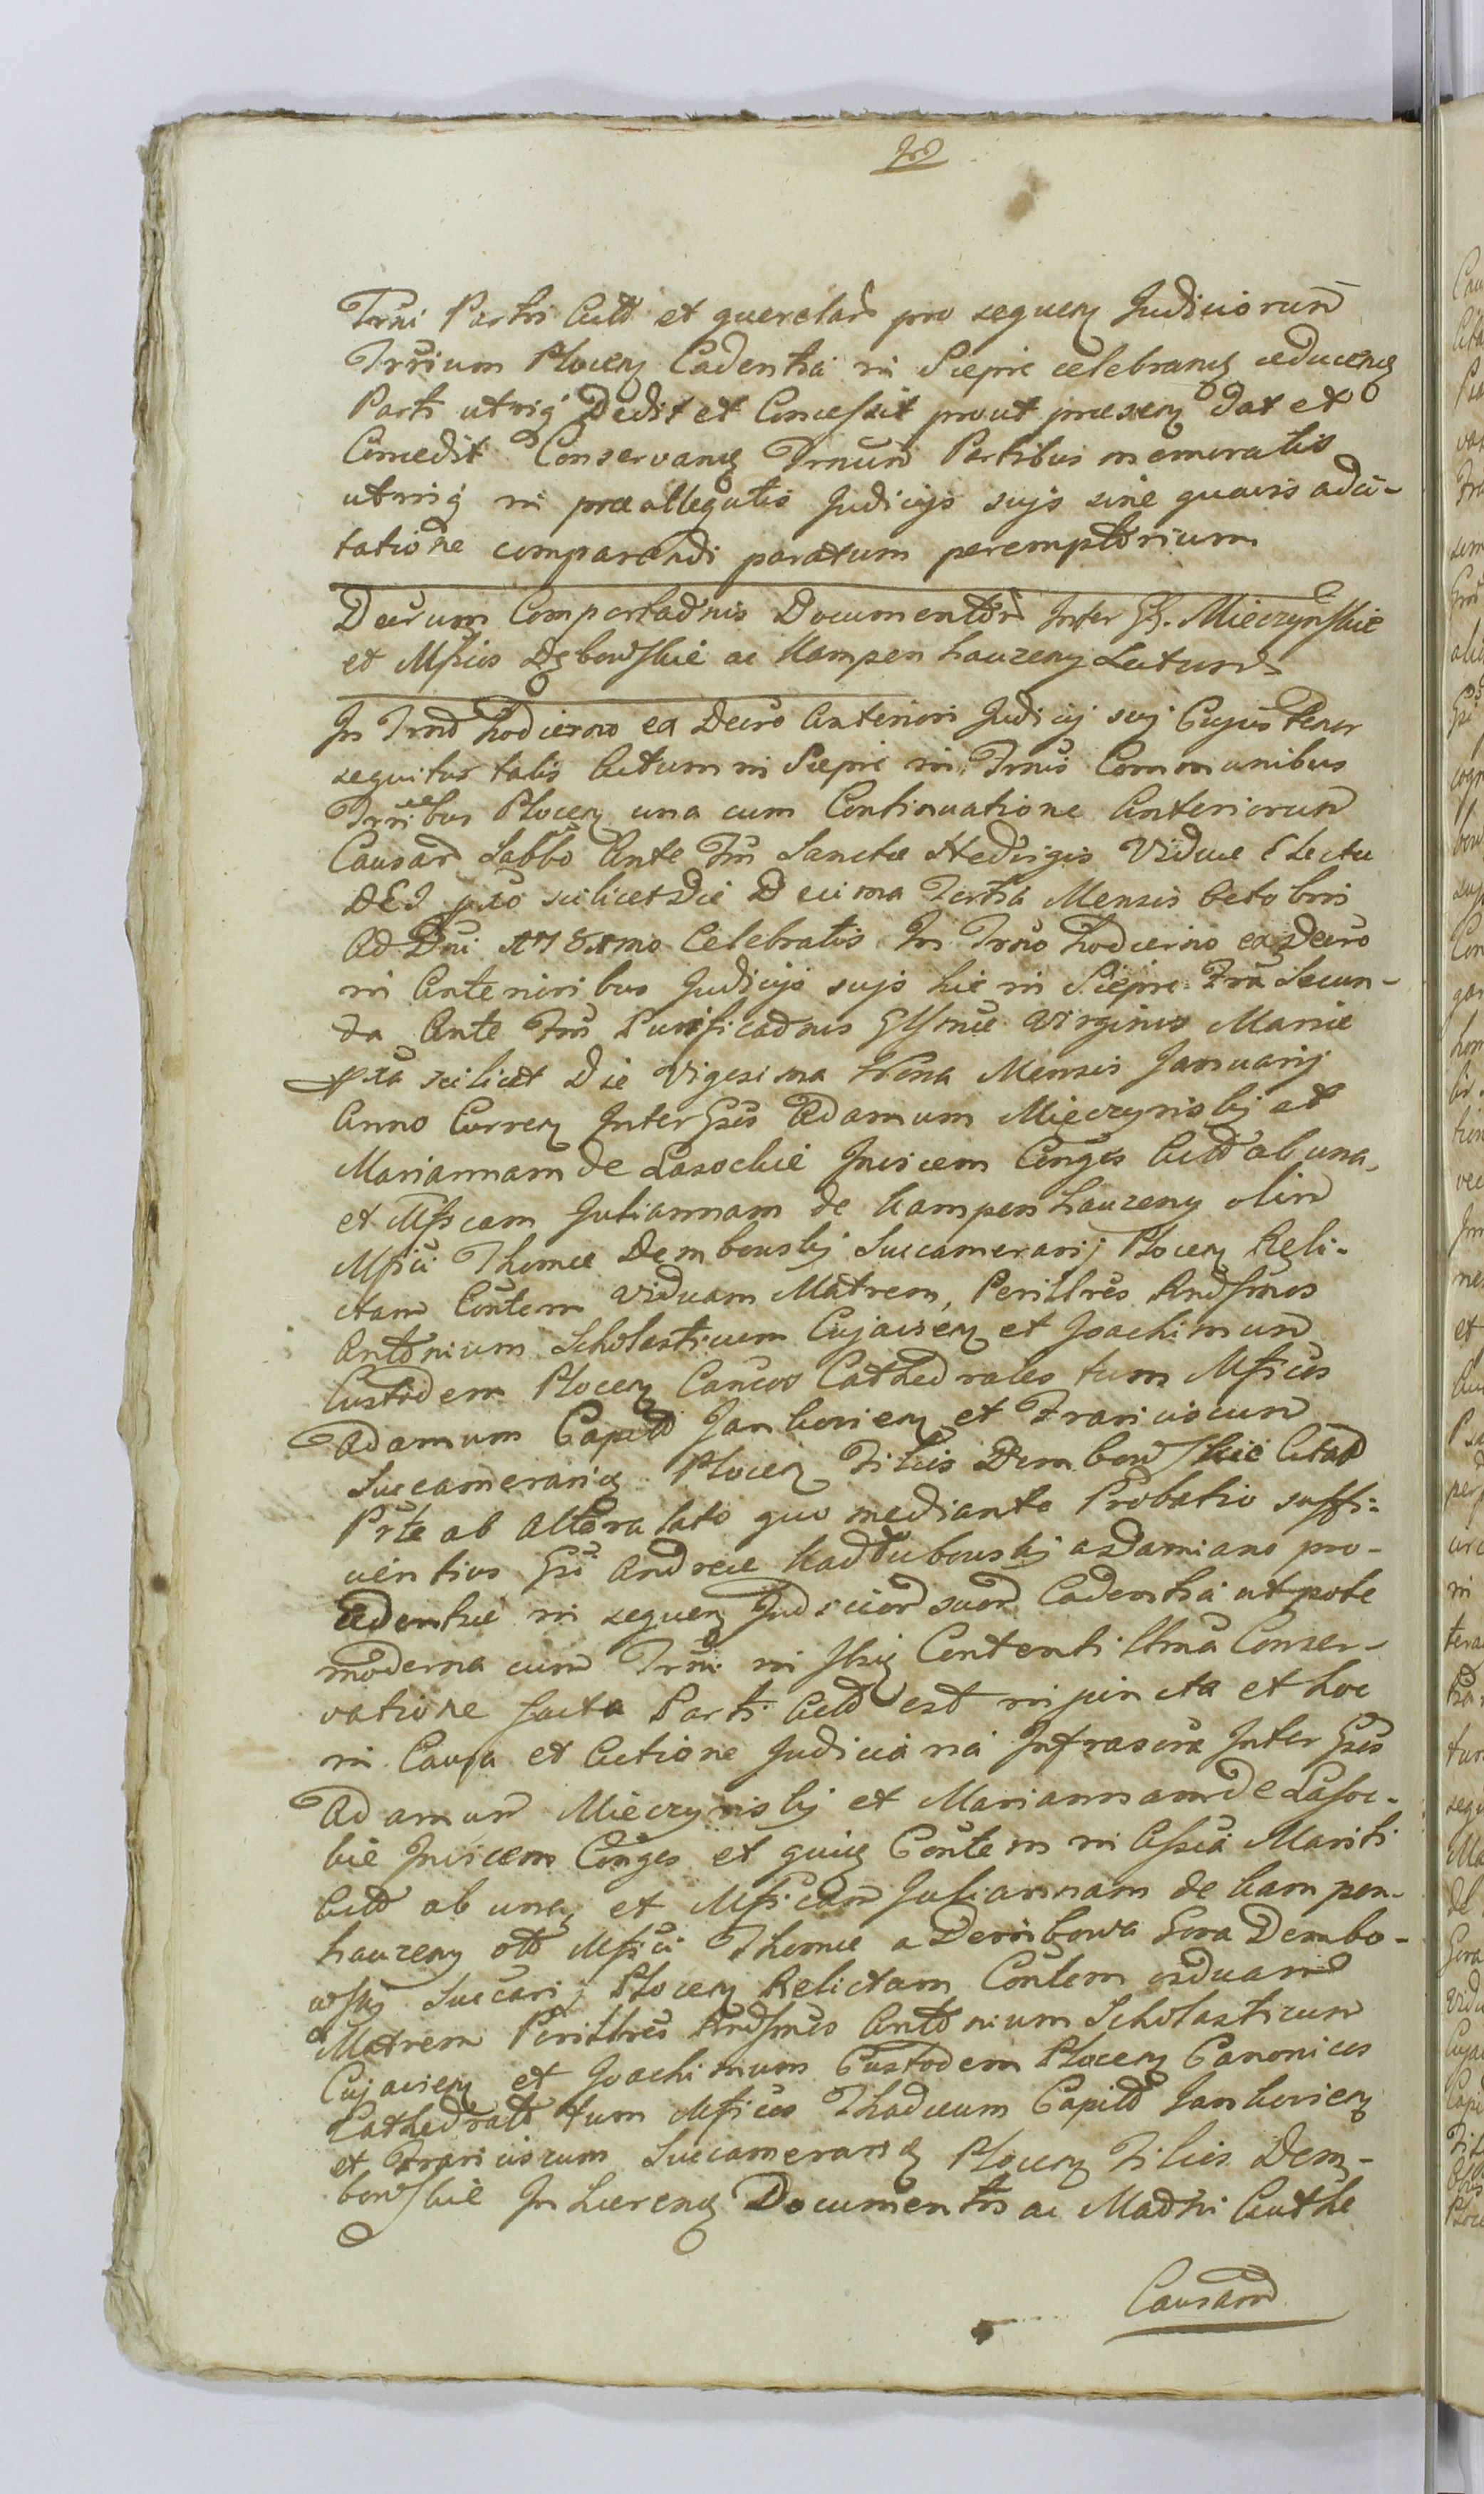 Trni Partis Actt et querelan pro sequen Judiciorum
Trrium Plocen Cadentia in Sieprc celebranq educenq
Parti utriq Dedit et Concessit prout praesen dat et
Concedit Conservanq Trnum Partibus memoratis
utriq in praeallegatis Judicijs suis sine quavis adci-
tatione comparendi paratum peremptorium
Decrum Comportadnis Documentor Inter GG. Mieczynskie
et Mficos Dębowskie ac Kampenhauzeny Latum
In Trno hodierno ex Decro Anteriori Judicij sui Cujus tenor
sequitur talis Actum in Sieprc in Trnis Communibus
Trribus Plocen una cum Continuatione Anteriorum
Causar Sabbo Ante Fm Sanctae Hedvigis Viduae Electae
DEI pxo scilicet Die Decima Tertia Mensis Octobris
Ad Dni 178 mo Celebratis In Trno hodierno ex Decro
in Anterioribus Judicijs suis hic in Sieprc Fra Secun-
da Ante Fm Purificadnis Glsmae Virginis Mariae
pxa scilicet Die Vigesima Nona Mensis Januarij
Anno Curren Inter Gsos Adamum Mieczynskij et
Mariannam de Lasockie Invicem Conges Actt ab una,
et Mficam Juliannam de Kampenhauzeny olim
Mfici Thomae Dembowskij Succamerarij Plocen Reli-
ctam Contem Viduam Matrem, Perillres Rndsmos
Antonium Scholasticum Cujavien et Joachimum
Custodem Plocen Cancos Cathedrales tum Mficos
Adamum Captt Jankovien et Franciscum
Succamerariq Plocen Filios Dembowskie Citat
Prte ab altera lato quo medianto Probatio suffi-
cientius Gsi Andreae Kadłubowskij a Damiano pro-
cedentiae in sequen Judicior suor Cadentia utpote
moderna cum Trni in Hujq Contenti Ultma Conser-
vatione facta Parti Actt est injuncta et hoc
in Causa et Actione Judiciaria Infrascra Inter Gsos
Adamum Mieczynskij et Mariannam de Lasoc-
kie Invicem Conges et quiq Contem in Assia Mariti
Actt ab una, et Mficam Juliannam de Kampen-
hauzeny ott Mfici Thomae a Dembowa Gora Dembo-
wskij Succarij Plocen Relictam Contem viduam
Matrem Perillres Rndsmos Antonium Scholasticum
Cujavien et Joachimum Custodem Plocen Canonicos
Cathedratt tum Mficos Thadeum Capitt Jankovien
et Franciscum Succamerariq Plocen Filios Dem-
bowskie Inhaerenq Documentis ac Madtri Authe
Causam